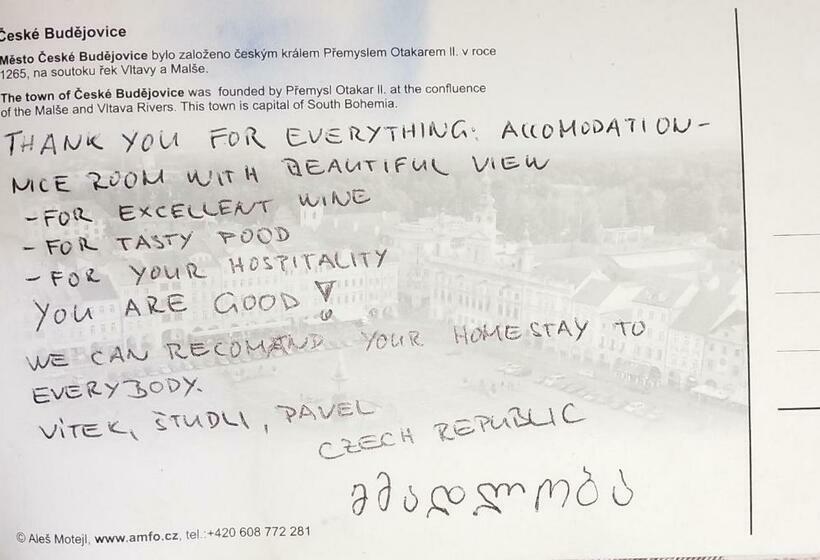 České Budějovice
Město České Budějovice bylo založeno českým králem Přemyslem Otakarem II. v roce
1265, na soutoku řek Vltavy a Malše.
The town of České Budějovice was founded by Přemysl Otakar II. at the confluence
of the Malše and Vltava Rivers. This town is capital of South Bohemia.
THANK YOU FOR EVERYTHING: ACCOMODATION -
NICE ROOM WITH BEAUTIFUL VIEW
- FOR EXCELLENT WINE
- FOR TASTY FOOD
- FOR YOUR HOSPITALITY
YOU ARE GOOD!
WE CAN RECOMAND YOUR HOMESTAY TO
EVERYBODY.
VÍTEK, ŠTUDLI, PAVEL
CZECH REPUBLIC
გმადლობა
© Aleš Motejl, www.amfo.cz, tel.:+420 608 772 281